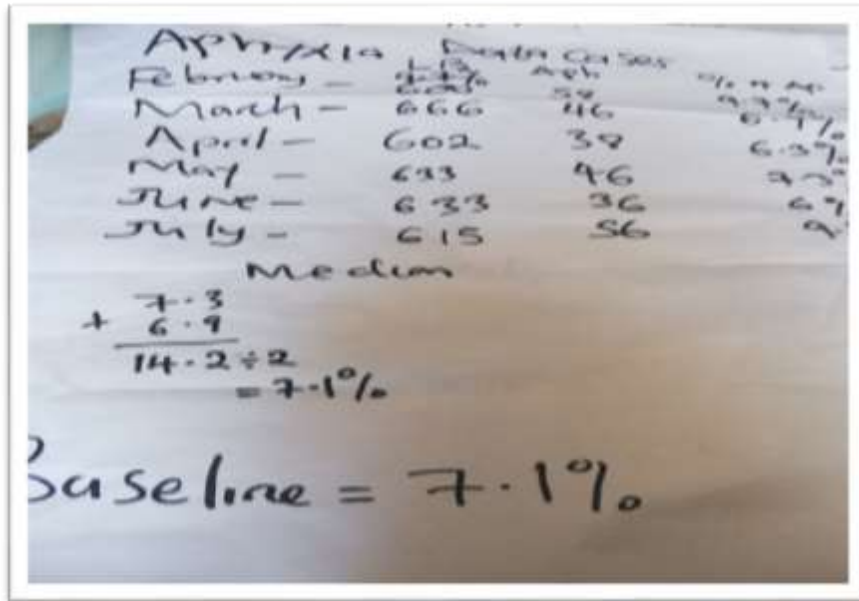 Aphyxia Data Cases
February - LB Aph
March - 666 46 6.9%
April - 602 38 6.3%
May - 633 46 7.3%
June - 633 36
July - 615 56
Median
7.3
+ 6.9
14.2 ÷ 2
= 7.1%
Baseline = 7.1%